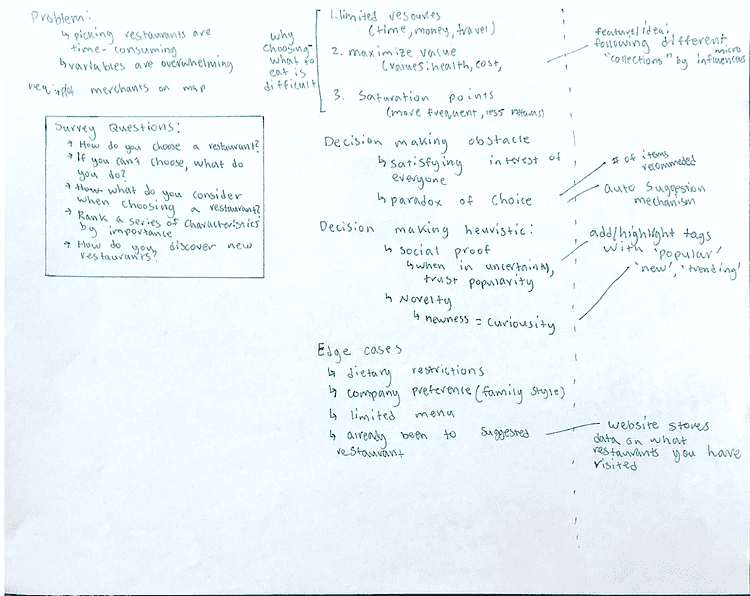 Problem:
↳ picking restaurants are
time-consuming
↳ variables are overwhelming
merchants on map
Survey Questions:
→ How do you choose a restaurant?
→ If you can't choose, what do
you do?
→ How what do you consider
when choosing a restaurant?
→ Rank a series of characteristics
by importance
→ How do you discover new
restaurants?
why
choosing
what to
eat is
difficult
1. limited resources
(time, money, travel)
2. maximize value
(values: health, cost,
3. Saturation points
(more frequent, less returns)
Decision making obstacle
↳ satisfying interest of
everyone
↳ paradox of choice
Decision making heuristic:
↳ social proof
↳ when in uncertainty,
trust popularity
↳ Novelty
↳ newness = curiousity
Edge cases
↳ dietary restrictions
↳ company preference (family style)
↳ limited menu
↳ already been to suggested
restaurant
feature/idea:
following different
"collections" by micro influencers
# of items
recommeded
auto sugession
mechanism
add/highlight tags
with 'popular'
'new', 'trending'
website stores
data on what
restaurants you have
visited